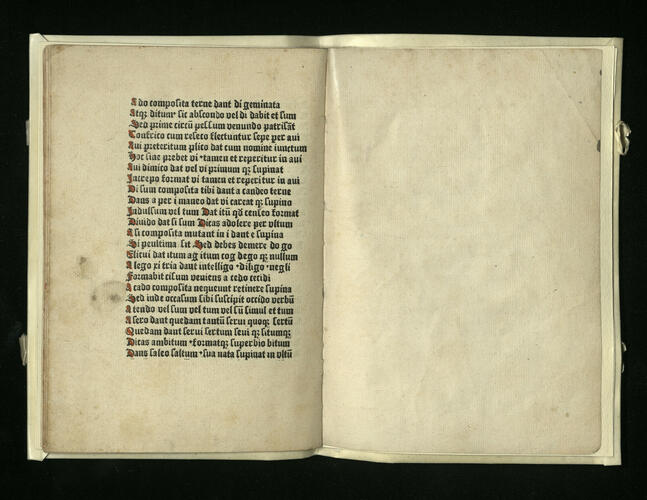 A do composita terne dant di geminata
Atqꝫ ditum sic abscondo vel di dabit et sum
Sed prime circū pessum venundo patrisāt
Confrico cum reseco flectuntur sepe per aui
Aui preteritum plico dat cum nomine iunctum
Hoc sine prebet vi tamen et reperitur in aui
Aui dimico dat vel vi primum qꝫ supinat
Increpo format vi tamen et reperitur in aui
Di sum composita tibi dant a candeo terne
Dans a per i maneo dat vi careat qꝫ supino
Indulsum vel tum Dat itū qd censeo format
Diuido dat si sum Dicas adolere per vltum
A si composita mutant in i dant e supina
Si peultima sit Sed debes demere do go
Elicui dat itum ag itum cog dego qꝫ nullum
A lego xi tria dant intelligo ·diligo ·negli
Formabit cisum veniens a cedo cecidi
A cado composita nequeunt retinere supina
Sed inde occasum sibi suscipit occido verbū
A tendo vel sum vel tum vel sū simul et tum
A sero dant quedam tantū serui quoqꝫ sertū
Quedam dant serui sertum seui qꝫ situmqꝫ
Dicas ambitum ·formatqꝫ superbio bitum
Dans saleo saltum ·sua nata supinat in vltū